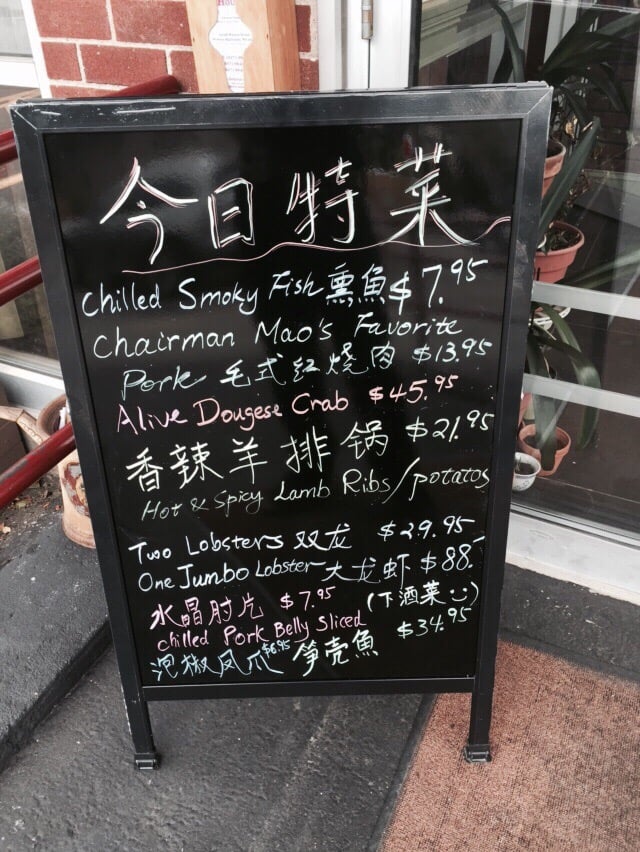 今日特菜
Chilled Smoky Fish 熏魚 $7.95
Chairman Mao's Favorite
Pork 毛式红燒肉 $13.95
Alive Dougese Crab $45.95
香辣羊排锅 $21.95
Hot & Spicy Lamb Ribs/potatos
Two Lobsters 双龙 $29.95
One Jumbo Lobster 大龙虾 $88.
水晶肘片 $7.95 (下酒菜)
chilled Pork Belly Sliced
泡椒凤爪 $6.95 笋壳魚 $34.95